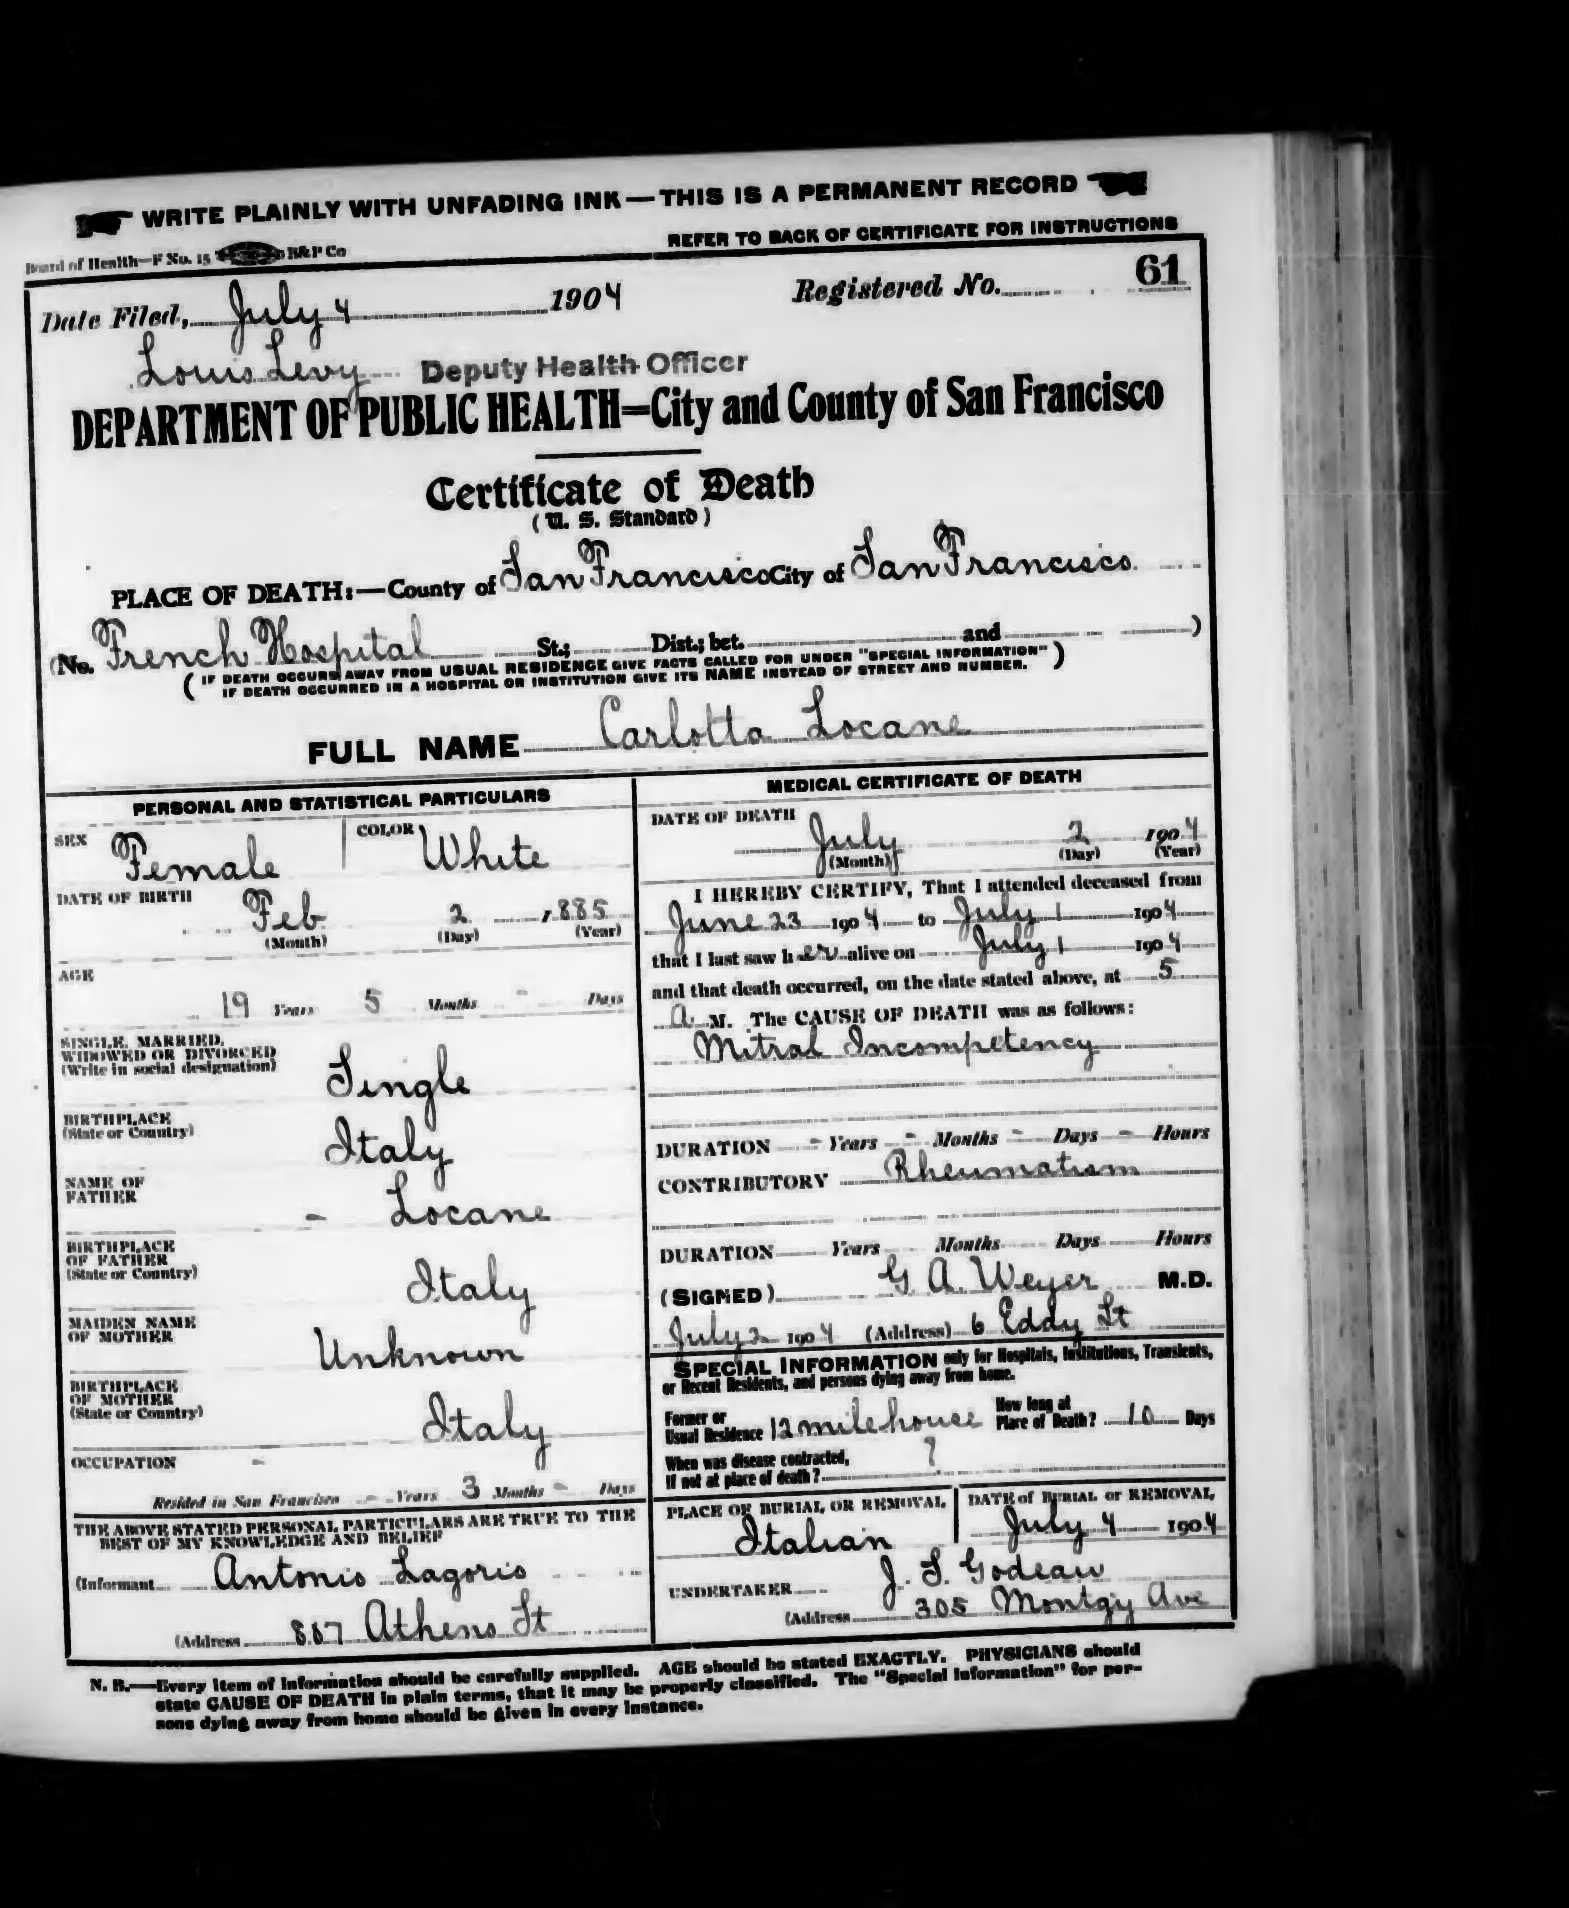 WRITE PLAINLY WITH UNFADING INK — THIS IS A PERMANENT RECORD
Board of Health—F No. 15 B&P Co
REFER TO BACK OF CERTIFICATE FOR INSTRUCTIONS
Date Filed, July 4 1904 Registered No. 61
Louis Levy Deputy Health Officer
DEPARTMENT OF PUBLIC HEALTH=City and County of San Francisco
Certificate of Death
(U. S. Standard)
PLACE OF DEATH:—County of San Francisco City of San Francisco
(No. French Hospital St.; Dist.; bet. and )
( IF DEATH OCCURS AWAY FROM USUAL RESIDENCE GIVE FACTS CALLED FOR UNDER "SPECIAL INFORMATION" )
IF DEATH OCCURRED IN A HOSPITAL OR INSTITUTION GIVE ITS NAME INSTEAD OF STREET AND NUMBER.
FULL NAME Carlotta Locane
PERSONAL AND STATISTICAL PARTICULARS
SEX Female COLOR White
DATE OF BIRTH Feb 2 , 885
(Month) (Day) (Year)
AGE
19 Years 5 Months - Days
SINGLE, MARRIED,
WIDOWED OR DIVORCED
(Write in social designation) Single
BIRTHPLACE
(State or Country) Italy
NAME OF
FATHER - Locane
BIRTHPLACE
OF FATHER
(State or Country) Italy
MAIDEN NAME
OF MOTHER Unknown
BIRTHPLACE
OF MOTHER
(State or Country) Italy
OCCUPATION -
Resided in San Francisco - Years 3 Months - Days
THE ABOVE STATED PERSONAL PARTICULARS ARE TRUE TO THE
BEST OF MY KNOWLEDGE AND BELIEF
(Informant Antonio Lagoris
(Address 887 Athens St
MEDICAL CERTIFICATE OF DEATH
DATE OF DEATH
July 2 1904
(Month) (Day) (Year)
I HEREBY CERTIFY, That I attended deceased from
June 23 1904 to July 1 1904
that I last saw her alive on July 1 1904
and that death occurred, on the date stated above, at 5
a M. The CAUSE OF DEATH was as follows:
Mitral Incompetency
DURATION - Years - Months - Days - Hours
CONTRIBUTORY Rheumatism
DURATION Years Months Days Hours
(SIGNED) G. A. Weyer M.D.
July 2 1904 (Address) 6 Eddy St
SPECIAL INFORMATION only for Hospitals, Institutions, Transients,
or Recent Residents, and persons dying away from home.
Former or
Usual Residence 12 mile house How long at
Place of Death? 10 Days
When was disease contracted,
If not at place of death? ?
PLACE OF BURIAL OR REMOVAL
Italian
DATE of BURIAL or REMOVAL
July 4 1904
UNDERTAKER J. S. Godeau
(Address 305 Montgy Ave
N. B.—Every item of information should be carefully supplied. AGE should be stated EXACTLY. PHYSICIANS should
state CAUSE OF DEATH in plain terms, that it may be properly classified. The "Special Information" for per-
sons dying away from home should be given in every instance.